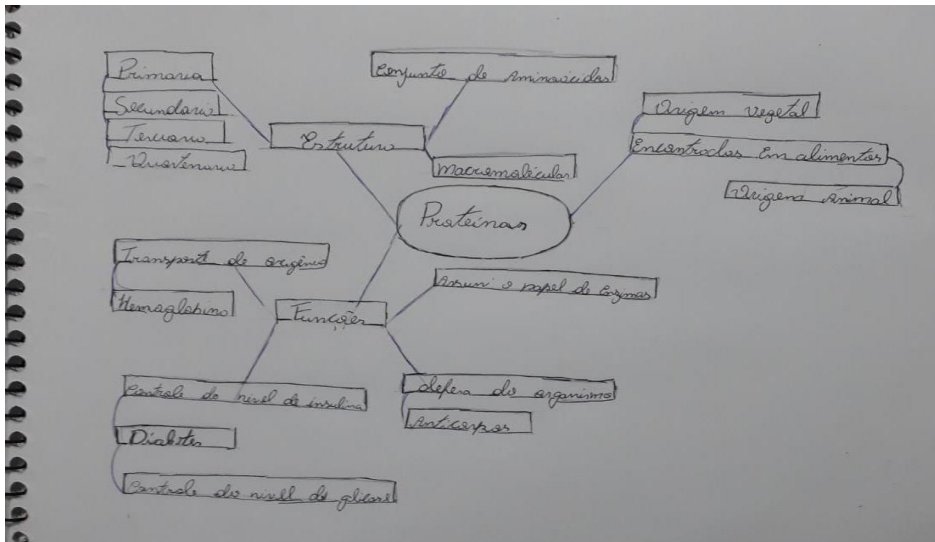 Primaria
Secundaria
Terciaria
Quartenaria
Estrutura
Conjunto de Aminoácidos
Macromoléculas
Origem vegetal
Encontradas Em alimentos
Origem Animal
Proteínas
Transporte de oxigênio
Hemoglobina
Funções
Assumi o papel de Enzimas
Controle do nivel de insulina
Diabetes
Controle do nivel de glicose
defesa do organismo
Anticorpos